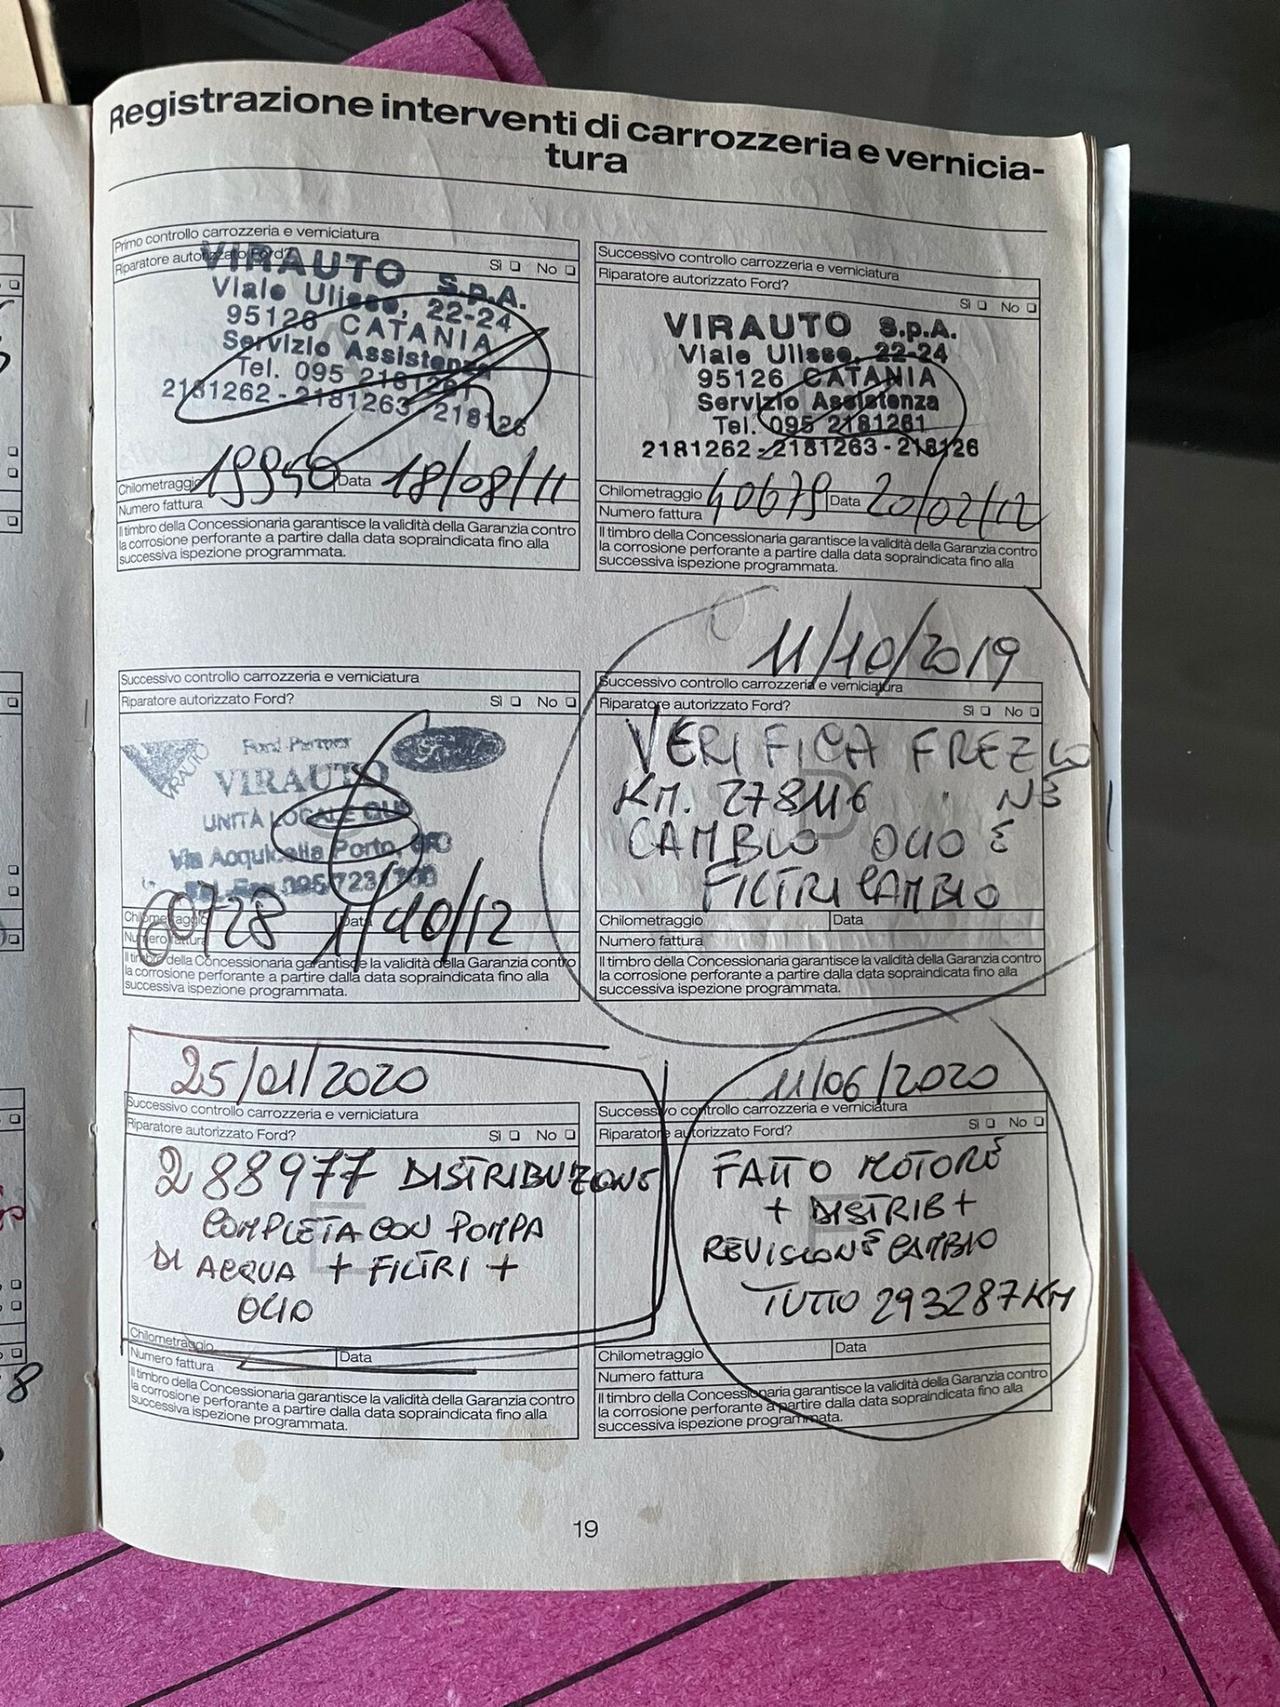 Registrazione interventi di carrozzeria e vernicia-
tura
Primo controllo carrozzeria e verniciatura
Riparatore autorizzato Ford? Sì No
VIRAUTO S.p.A.
Viale Ulisse, 22-24
95126 CATANIA
Servizio Assistenza
Tel. 095 2181261
2181262 - 2181263 - 218126
Chilometraggio 19940 Data 18/08/11
Numero fattura
Il timbro della Concessionaria garantisce la validità della Garanzia contro
la corrosione perforante a partire dalla data sopraindicata fino alla
successiva ispezione programmata.
Successivo controllo carrozzeria e verniciatura
Riparatore autorizzato Ford?
Sì No
VIRAUTO S.p.A.
Viale Ulisse, 22-24
95126 CATANIA
Servizio Assistenza
Tel. 095 2181261
2181262 - 2181263 - 218126
Chilometraggio 40679 Data 20/02/12
Numero fattura
Il timbro della Concessionaria garantisce la validità della Garanzia contro
la corrosione perforante a partire dalla data sopraindicata fino alla
successiva ispezione programmata.
Successivo controllo carrozzeria e verniciatura
Riparatore autorizzato Ford? Sì No
VIRAUTO Ford Partner Ford
VIRAUTO
UNITÀ LOCALE
Via Acquicella Porto,
60728 1/10/12
Chilometraggio Data
Numero fattura
Il timbro della Concessionaria garantisce la validità della Garanzia contro
la corrosione perforante a partire dalla data sopraindicata fino alla
successiva ispezione programmata.
11/10/2019
Successivo controllo carrozzeria e verniciatura
Riparatore autorizzato Ford?
Sì No
VERIFICA
KM. 278116
CAMBIO OLIO E
FILTRI CAMBIO
Chilometraggio Data
Numero fattura
Il timbro della Concessionaria garantisce la validità della Garanzia contro
la corrosione perforante a partire dalla data sopraindicata fino alla
successiva ispezione programmata.
25/01/2020
Successivo controllo carrozzeria e verniciatura
Riparatore autorizzato Ford? Sì No
288977 DISTRIBUZIONE
COMPLETA CON POMPA
DI ACQUA + FILTRI +
OLIO
Chilometraggio
Numero fattura Data
Il timbro della Concessionaria garantisce la validità della Garanzia contro
la corrosione perforante a partire dalla data sopraindicata fino alla
successiva ispezione programmata.
11/06/2020
Successivo controllo carrozzeria e verniciatura
Riparatore autorizzato Ford? Sì No
FATTO MOTORE
+ DISTRIB +
REVISIONE CAMBIO
TUTTO 293287 KM
Chilometraggio Data
Numero fattura
Il timbro della Concessionaria garantisce la validità della Garanzia contro
la corrosione perforante a partire dalla data sopraindicata fino alla
successiva ispezione programmata.
19
8